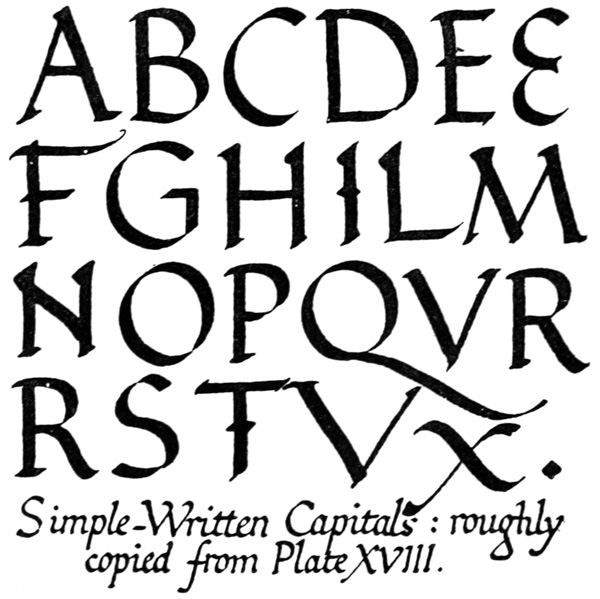 ABCDEE
FGHILM
NOPQVR
RSTVX.
Simple-Written Capitals : roughly
copied from Plate XVIII.